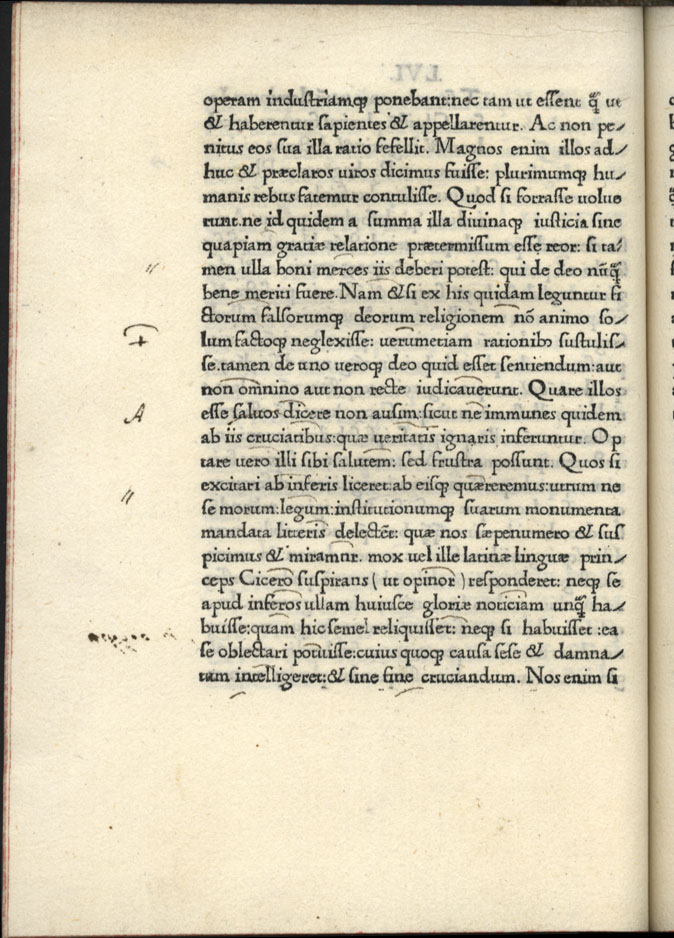 operam industriamq̃ ponebant:nec tam ut essent q̃̃ ut
& haberentur sapientes & appellarentur. Ac non pe⸗
nitus eos sua illa ratio fefellit. Magnos enim illos ad⸗
huc & præclaros uiros dicimus fuisse: plurimumq; hu⸗
manis rebus fatemur contulisse. Quod si fortasse uolue
runt.ne id quidem a summa illa diuinaq; iusticia sine
quapiam gratiæ relatione prætermissum esse reor: si ta⸗
men ulla boni merces iis deberi potest: qui de deo nūq̃
bene meriti fuere. Nam & si ex his quidam leguntur fi
ctorum falsorumq; deorum religionem nō animo so⸗
lum factoq; neglexisse: uerumetiam rationib; sustulis⸗
se.tamen de uno ueroq; deo quid esset sentiendum:aut
non omnino aut non recte iudicauerunt. Quare illos
esse saluos dicere non ausim:sicut ne immunes quidem
ab iis cruciatibus:quæ ueritatis ignaris inferuntur. Op
tare uero illi sibi salutem: sed frustra possunt. Quos si
excitari ab inferis liceret:ab eisq; quæreremus:utrum ne
se morum:legum:institutionumq; suarum monumenta
mandata litteris delectēt: quæ nos sæpenumero & sus
picimus & miramur. mox uel ille latinæ linguæ prin⸗
ceps Cicero suspirans ( ut opinor ) responderet: neq; se
apud inferos ullam huiusce gloriæ noticiam unq̃ ha⸗
buisse:quam hic semel reliquisset: neq; si habuisset :ea
se oblectari potuisse:cuius quoq; causa sese & damna⸗
tum intelligeret:& sine fine cruciandum. Nos enim si